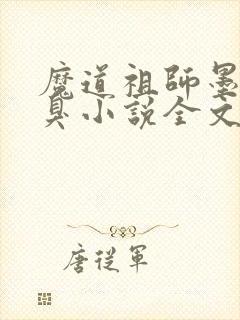 魔道祖師墨
臭小説全文
唐從軍